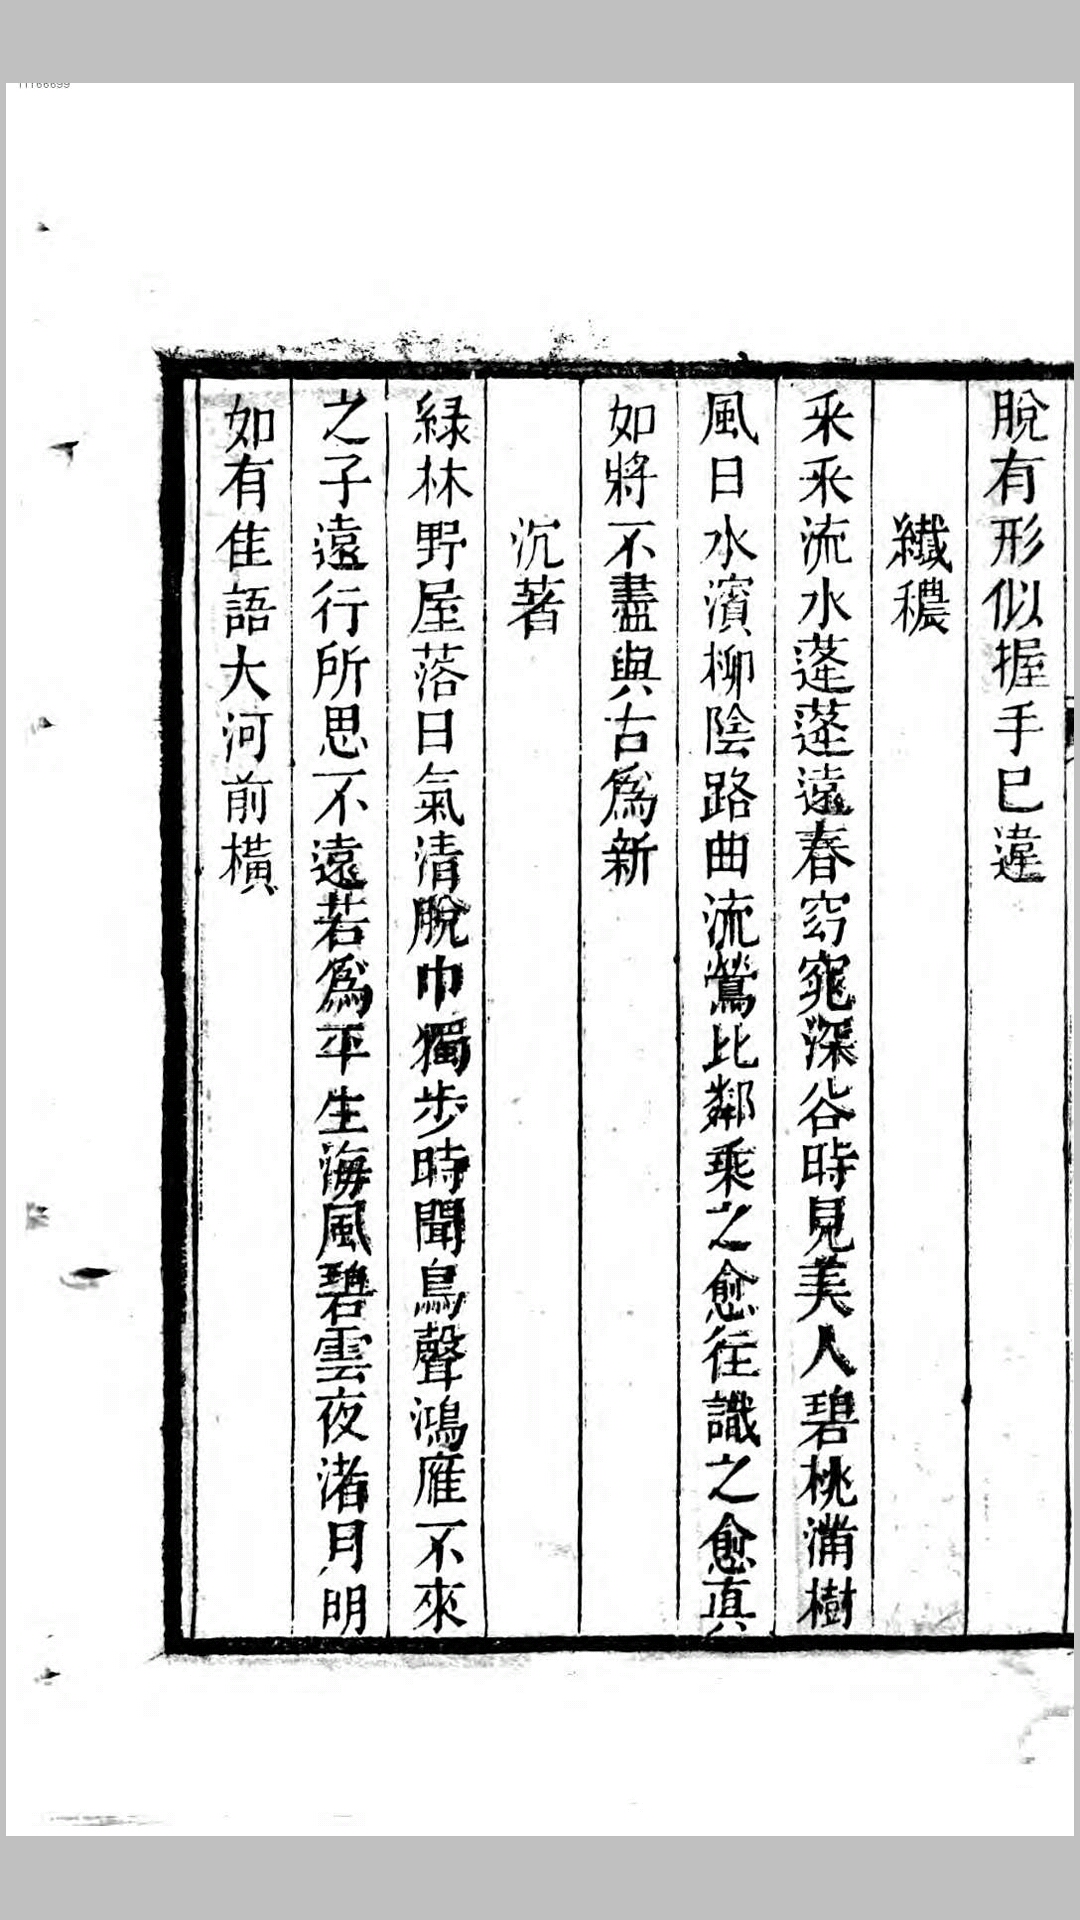 脫有形似握手已違
纖穠
采采流水蓬蓬遠春窈窕深谷時見美人碧桃滿樹
風日水濱柳陰路曲流鶯比鄰乘之愈往識之愈真
如將不盡與古爲新
沉著
緑林野屋落日氣清脫巾獨步時聞鳥聲鴻雁不來
之子遠行所思不遠若爲平生海風碧雲夜渚月明
如有佳語大河前橫